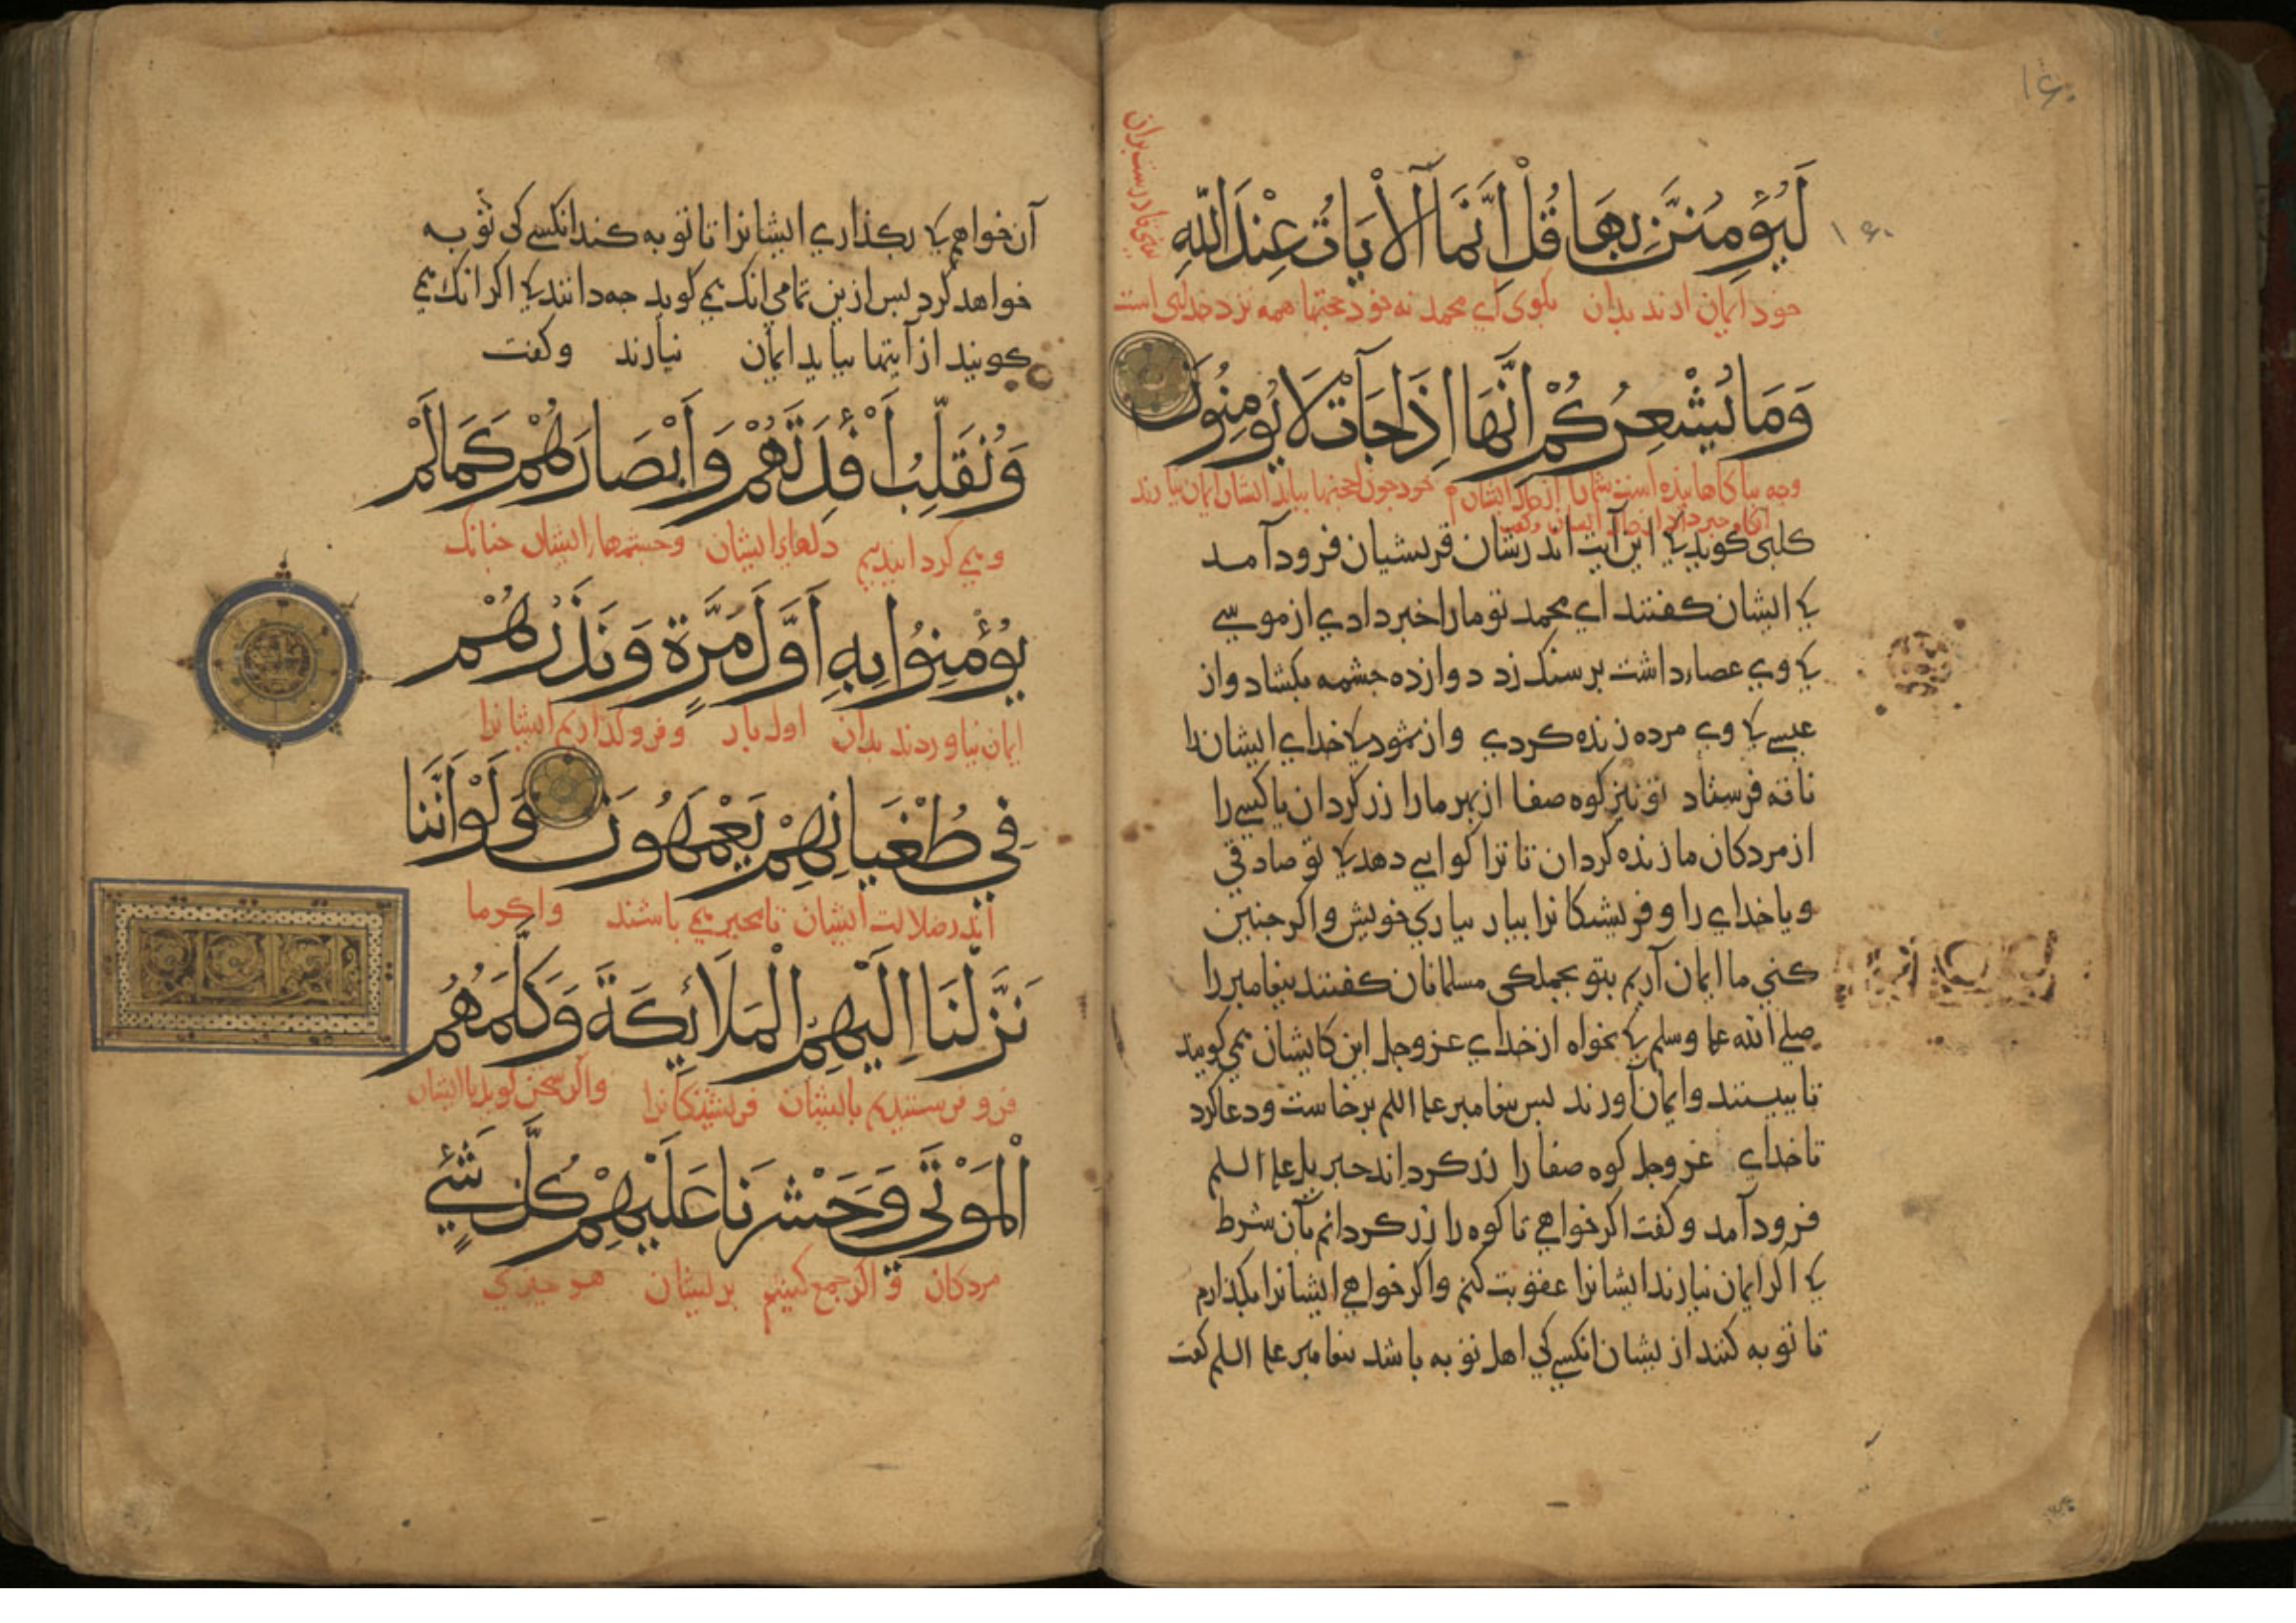 ١٤٠
لَيُؤمِنُنَّ بِهَا قُلْ اِنَّمَا ٱلْأيَاتُ عِنْدَ اللّٰهِ
١٤٠
خود ایمان ارند بدان بکوی ای محمد نه خود حجتها همه نزد خدای است
وَمَا يُشْعِرُكُمْ اَنَّهَا اِذَا جَآتْ لَا يُومِنُونَ
وجه اکاهانیده است شمارا از حال ایشان خود چون حجتها بیاید ایشان ایمان نیارند
کلبی کوید کی این آیت اندر شان قریشیان فرود آمد
کی ایشان کفتند ای محمد تو مارا خبر دادی از موسی
کی وی عصا داشت بر سنک زد دوازده جشمه بکشاد و از
عیسی کی وی مرده زنده کردی و از ثمود کی خدای ایشانرا
ناقه فرستاد تو نیز کوه صفا از بهر ما را زر کردان یا کسی را
از مردکان ما زنده کردان تا ترا کواهی دهد کی تو صادقی
و یا خدای را و فریشتکانرا بیار بیاری خویش و اکر جنین
کنی ما ایمان آریم بتو بجملکی مسلمانان کفتند بیغامبر را
صلی الله علیه وسلم کی بخواه از خدای عز وجل این کایشان همی کویند
تا ببینند و ایمان آورند بس بیغامبر علیه السلم برخاست و دعا کرد
تا خدای عز وجل کوه صفا را زر کرداند جبریل علیه السلم
فرود آمد و کفت اکر خواهی تا کوه را زر کردانم بآن شرط
کی اکر ایمان نیارند ایشانرا عقوبت کنم و اکر خواهی ایشانرا بکذارم
تا توبه کنند از یشان انکسی کی اهل توبه باشد بیغامبر علیه السلم کفت
آن خواهم کی بکذاری ایشانرا تا توبه کند انکسی کی توبه
خواهد کرد بس ازین تمامی انک همی کوید جه دانند کی اکر انک همی
کویند از آیتها بیاید ایمان نیارند وکفت
وَنُقَلِّبُ أَفْئِدَتَهُمْ وَاَبْصَارَهُمْ كَمَا لَمْ
و همی کردانیدیم دلهای ایشان و جشمهای ایشان جنانک
يُؤْمِنُوا بِهِ اَوَّلَ مَرَّةٍ وَنَذَرُهُمْ
ایمان نیاوردند بدان اول بار و فرو کذاریم ایشانرا
فِي طُغْيَانِهِمْ يَعْمَهُونَ وَلَوْ اَنَّنَا
اندر ضلالت ایشان تا متحیر همی باشند واکر ما
نَزَّلْنَا اِلَيْهِمُ الْمَلَائِكَةَ وَكَلَّمَهُمُ
فرو فرستیدیم بایشان فریشتکانرا واکر سخن کوید با ایشان
الْمَوْتَى وَحَشَرْنَا عَلَيْهِمْ كُلَّ شَيْءٍ
مردکان و اکر جمع کنیم بر ایشان هر جیزی